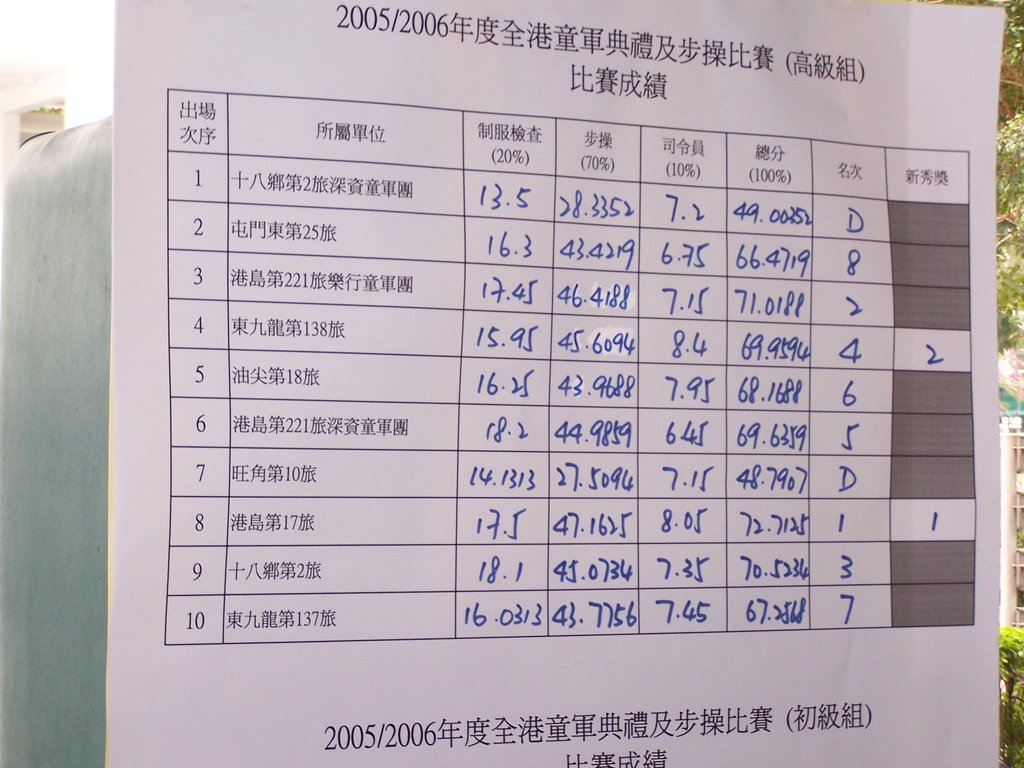 2005/2006年度全港童軍典禮及步操比賽 (高級組)
比賽成績
出場次序 所屬單位 制服檢查 (20%) 步操 (70%) 司令員 (10%) 總分 (100%) 名次 新秀獎
1 十八鄉第2旅深資童軍團 13.5 28.3352 7.2 49.00352 D
2 屯門東第25旅 16.3 43.4219 6.75 66.4719 8
3 港島第221旅樂行童軍團 17.45 46.4188 7.15 71.0188 2
4 東九龍第138旅 15.95 45.6094 8.4 69.9594 4 2
5 油尖第18旅 16.25 43.9688 7.95 68.1688 6
6 港島第221旅深資童軍團 18.2 44.9859 6.45 69.6359 5
7 旺角第10旅 14.1313 27.5094 7.15 48.7907 D
8 港島第17旅 17.5 47.1625 8.05 72.7125 1 1
9 十八鄉第2旅 18.1 45.0734 7.35 70.5234 3
10 東九龍第137旅 16.0313 43.7756 7.45 67.2568 7
2005/2006年度全港童軍典禮及步操比賽 (初級組)
比賽成績